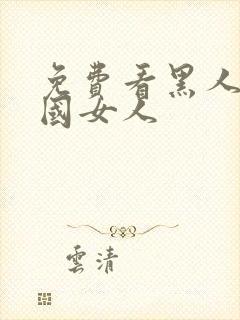 免費看黑人
國女人
雲清